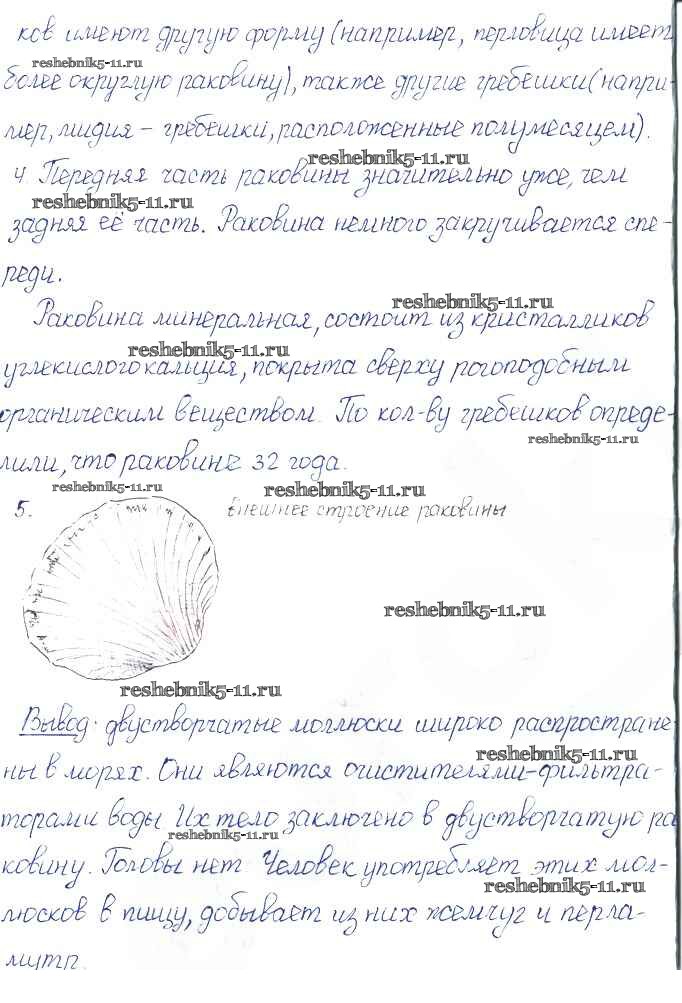 ков имеют другую форму (например, перловица имеет
reshebnik5-11.ru
более округлую раковину), также другие гребешки (напри-
мер, мидия – гребешки, расположенные полумесяцем).
reshebnik5-11.ru
4. Передняя часть раковины значительно уже, чем
reshebnik5-11.ru
задняя её часть. Раковина немного закручивается спе-
реди.
reshebnik5-11.ru
Раковина минеральная, состоит из кристалликов
reshebnik5-11.ru
углекислого кальция, покрыта сверху рогоподобным
органическим веществом. По кол-ву гребешков опреде-
reshebnik5-11.ru
лили, что раковине 32 года.
reshebnik5-11.ru
reshebnik5-11.ru
5. Внешнее строение раковины
reshebnik5-11.ru
reshebnik5-11.ru
Вывод: двустворчатые моллюски широко распростране
reshebnik5-11.ru
ны в морях. Они являются очистителями-фильтра-
торами воды. Их тело заключено в двустворчатую ра
reshebnik5-11.ru
ковину. Головы нет. Человек употребляет этих мол-
reshebnik5-11.ru
люсков в пищу, добывает из них жемчуг и перла-
мутр.